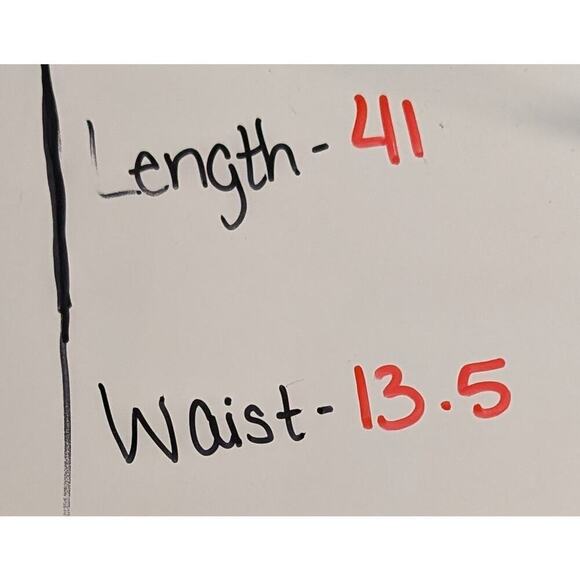 Length - 41
Waist - 13.5